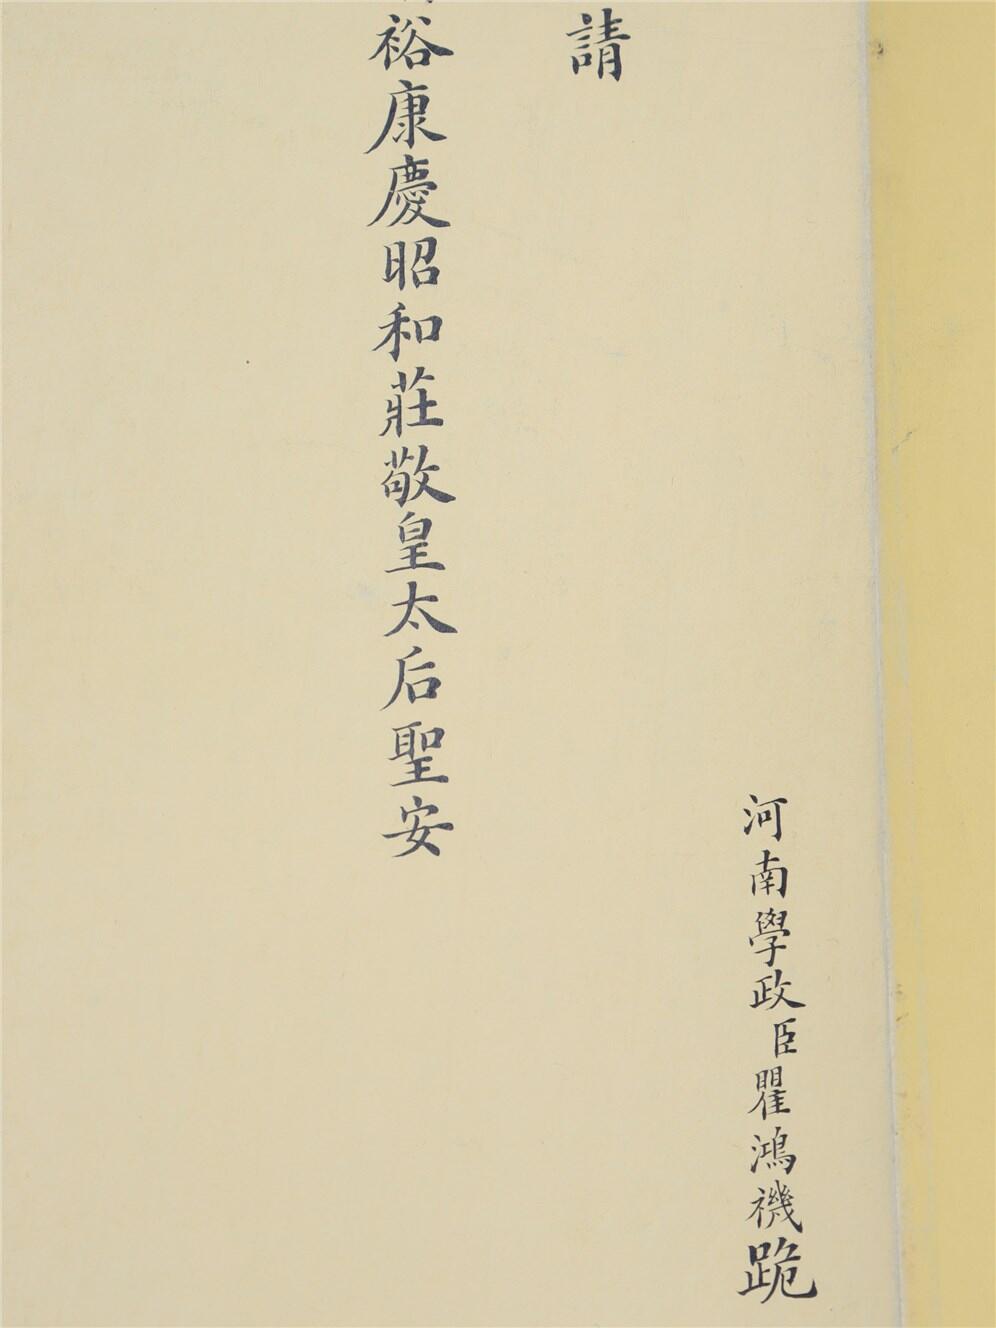 河南學政臣瞿鴻禨跪
請
裕康慶昭和莊敬皇太后聖安